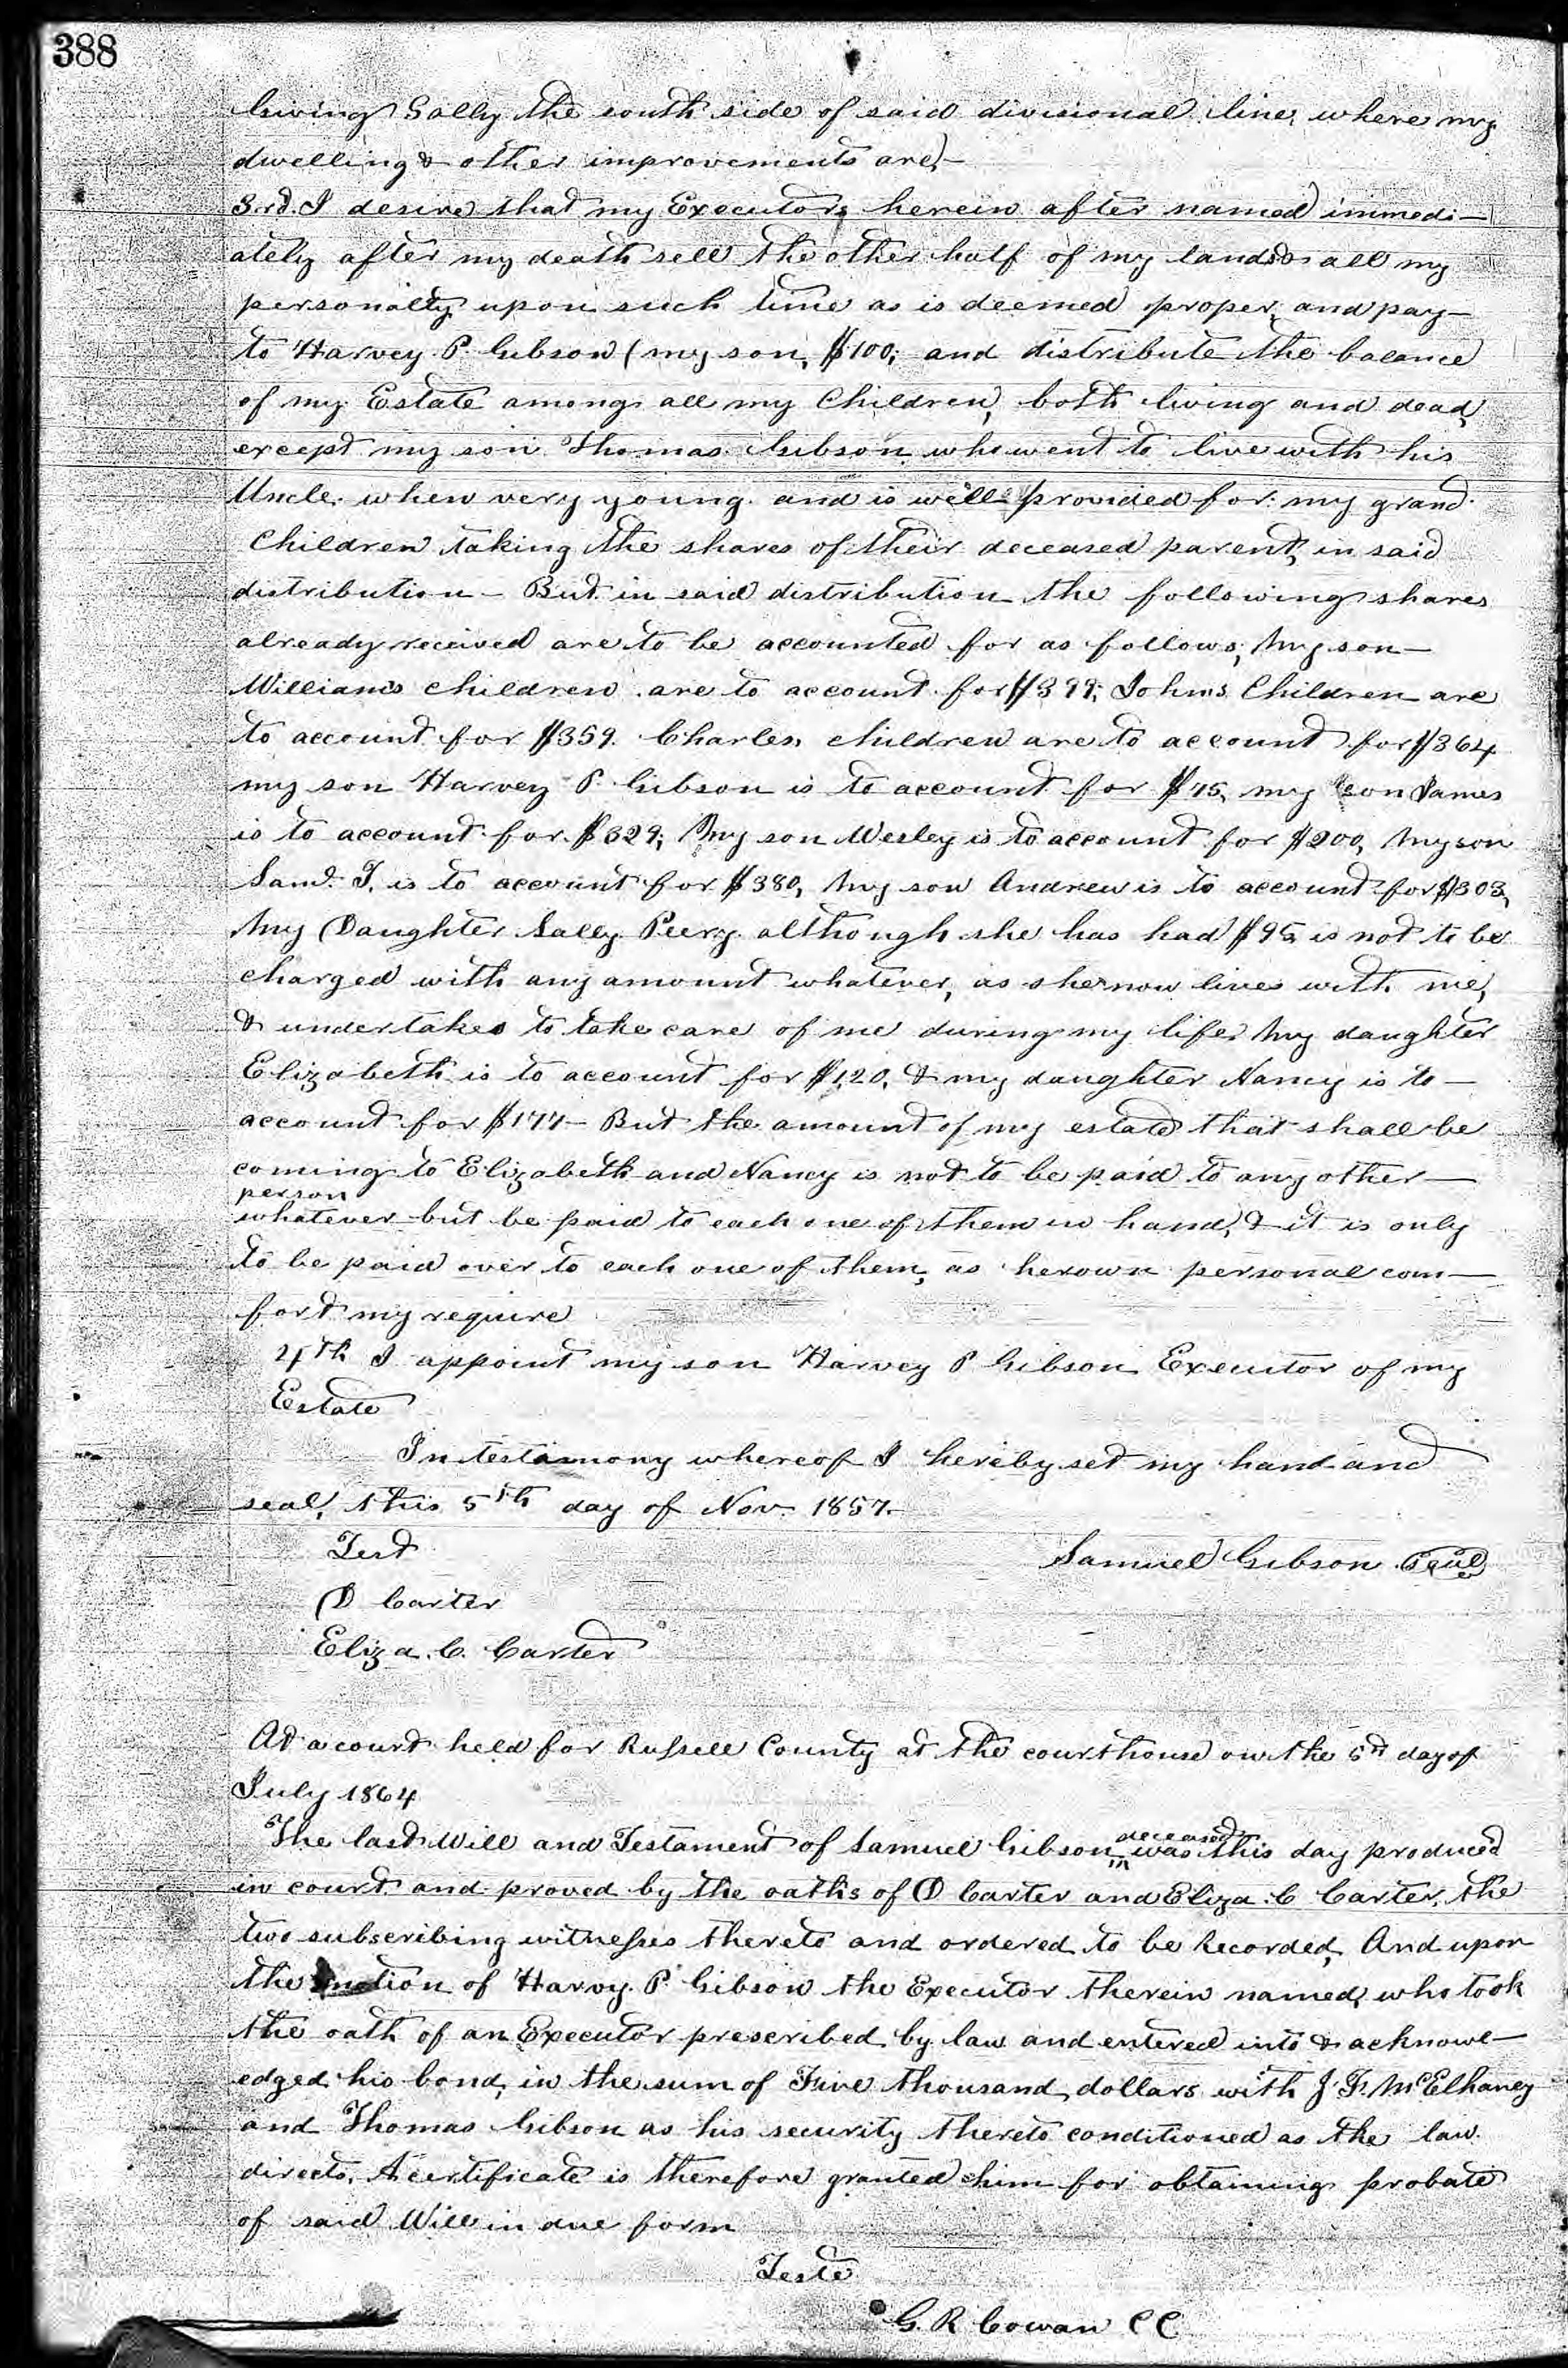 388
Giving Sally the south side of said divisional line, where my
dwelling & other improvements are,-
3rd. I desire that my Executors herein after named immedi-
ately after my death sell the other half of my land & all my
personalty upon such time as is deemed proper, and pay-
to Harvey P. Gibson (my son, $100; and distribute the balance
of my Estate among all my Children, both living and dead,
except my son Thomas Gibson who went to live with his
Uncle when very young and is well provided for my grand
Children taking the shares of their deceased parent, in said
distribution - But in said distribution the following shares
already received are to be accounted for as follows; My son-
William's children are to account for $399; Johns Children are
to account for $359. Charles children are to account for $364
my son Harvey P. Gibson is to account for $75, my son James
is to account for $329; My son Wesley is to account for $200, My son
Saml. T. is to account for $380, My son Andrew is to account for $303,
My Daughter Sally Peery although she has had $95 is not to be
charged with any amount whatever, as she now lives with me,
& undertakes to take care of me during my life, My daughter
Elizabeth is to account for $120, & my daughter Nancy is to-
account for $177- But the amount of my estate that shall be
coming to Elizabeth and Nancy is not to be paid to any other-
person
whatever but be paid to each one of them in hand, & it is only
to be paid over to each one of them, as her own personal com-
fort my require
4th I appoint my son Harvey P Gibson Executor of my
Estate
In testimony whereof I hereby set my hand and
seal, this 5th day of Nov. 1857.-
Test
Samuel Gibson Seal
D Carter
Eliza. C. Carter
At a court held for Russell County at the courthouse on the 5th day of
July 1864
The last Will and Testament of Samuel Gibson deceased was this day produced
in court and proved by the oaths of D Carter and Eliza. C Carter, the
two subscribing witnesses thereto and ordered to be Recorded, And upon
the motion of Harvy. P. Gibson the Executor therein named, who took
the oath of an Executor prescribed by law and entered into & acknowl-
edged his bond, in the sum of Five thousand dollars with J. F. McElhaney
and Thomas Gibson as his security thereto conditioned as the law
directs, A certificate is therefore granted him for obtaining probate
of said Will in due form
Teste
G. R Cowan CC